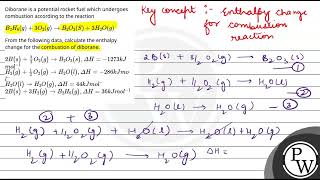 Diborane is a potential rocket fuel which undergoes
combustion according to the reaction
B₂H₆(g) + 3O₂(g) → B₂O₃(S) + 3H₂O(g)
From the following data, calculate the enthalpy
change for the combustion of diborane:
2B(s) + 3/2 O₂(g) → B₂O₃(s), ΔH = −1273kJ
mol
H₂(g) + 1/2 O₂(g) → H₂O(l), ΔH = −286kJmo
H₂O(l) → H₂O(g), ΔH = 44kJmol⁻
2B(s) + 3H₂(g) → B₂H₆(g), ΔH = 36kJmol⁻¹
key concept :- Enthalpy change
for combustion
reaction
2B(s) + 3/2 O₂(g) → B₂O₃(s)
①
H₂(g) + 1/2 O₂(g) → H₂O(l)
②
H₂O(l) → H₂O(g) - ③
② + ③
H₂(g) + 1/2 O₂(g) + H₂O(l) → H₂O(l) + H₂O(g)
H₂(g) + 1/2 O₂(g) → H₂O(g) ΔH =
PW